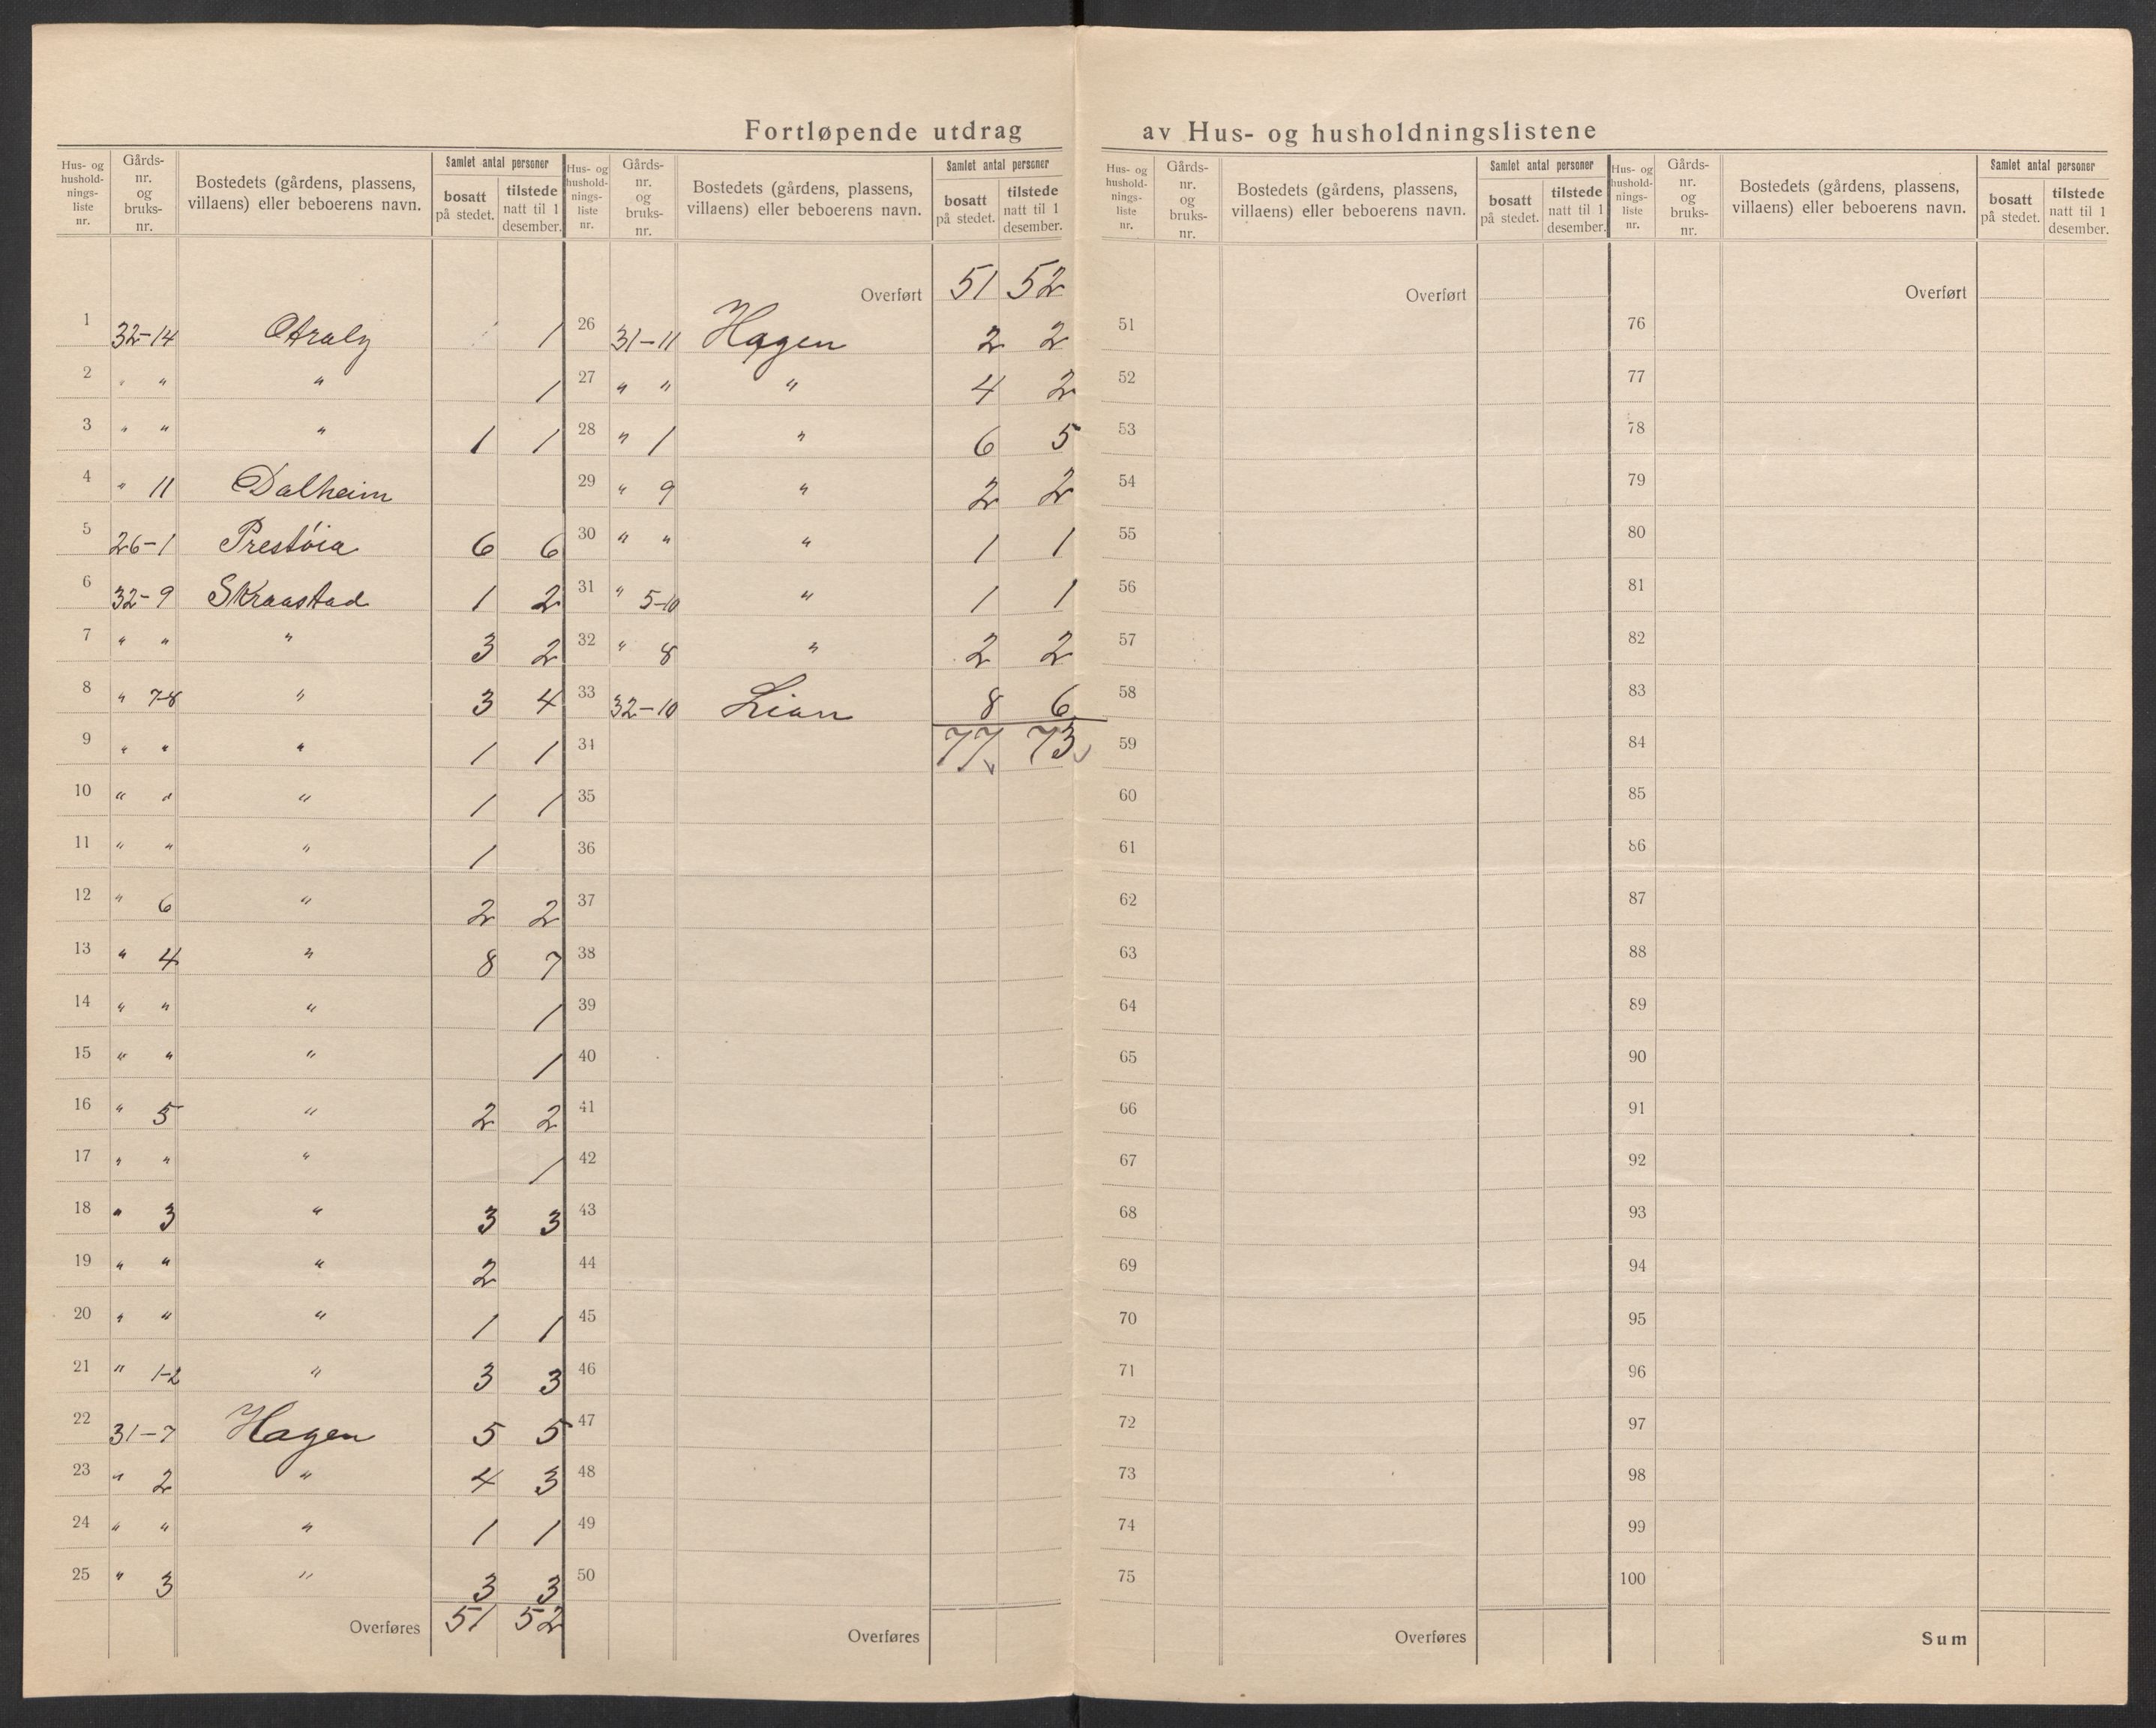 Fortløpende utdrag av Hus- og husholdningslistene
Hus- og husholdningsliste nr. Gårds-nr. og bruks-nr. Bostedets (gårdens, plassens, villaens) eller beboerens navn. Samlet antal personer bosatt på stedet. tilstede natt til 1 desember.
1 32-14 1
2 " " " 1
3 " " " 1 1
4 " 11 Dalheim
5 26-1 Prestöia 6 6
6 32-9 Skraastad 1 2
7 " " " 3 2
8 " 7-8 " 3 4
9 " " " 1 1
10 " " " 1 1
11 " " " 1
12 " 6 " 2 2
13 " 4 " 8 7
14 " " " 1
15 " " " 1
16 " 5 " 2 2
17 " " " 1
18 " 3 " 3 3
19 " " " 2
20 " " " 1 1
21 " 1-2 " 3 3
22 31-7 Hagen 5 5
23 " 2 " 4 3
24 " " " 1 1
25 " 3 " 3 3
Overføres 51 52
Hus- og husholdningsliste nr. Gårds-nr. og bruks-nr. Bostedets (gårdens, plassens, villaens) eller beboerens navn. Samlet antal personer bosatt på stedet. tilstede natt til 1 desember.
Overført 51 52
26 31-11 Hagen 2 2
27 " " " 4 2
28 " 1 " 6 5
29 " 9 " 2 2
30 " " " 1 1
31 " 5-10 " 1 1
32 " 8 " 2 2
33 32-10 Lian 8 6
34 77 73
35
36
37
38
39
40
41
42
43
44
45
46
47
48
49
50
Overføres
Hus- og husholdningsliste nr. Gårds-nr. og bruks-nr. Bostedets (gårdens, plassens, villaens) eller beboerens navn. Samlet antal personer bosatt på stedet. tilstede natt til 1 desember.
Overført
51
52
53
54
55
56
57
58
59
60
61
62
63
64
65
66
67
68
69
70
71
72
73
74
75
Overføres
Hus- og husholdningsliste nr. Gårds-nr. og bruks-nr. Bostedets (gårdens, plassens, villaens) eller beboerens navn. Samlet antal personer bosatt på stedet. tilstede natt til 1 desember.
Overført
76
77
78
79
80
81
82
83
84
85
86
87
88
89
90
91
92
93
94
95
96
97
98
99
100
Sum